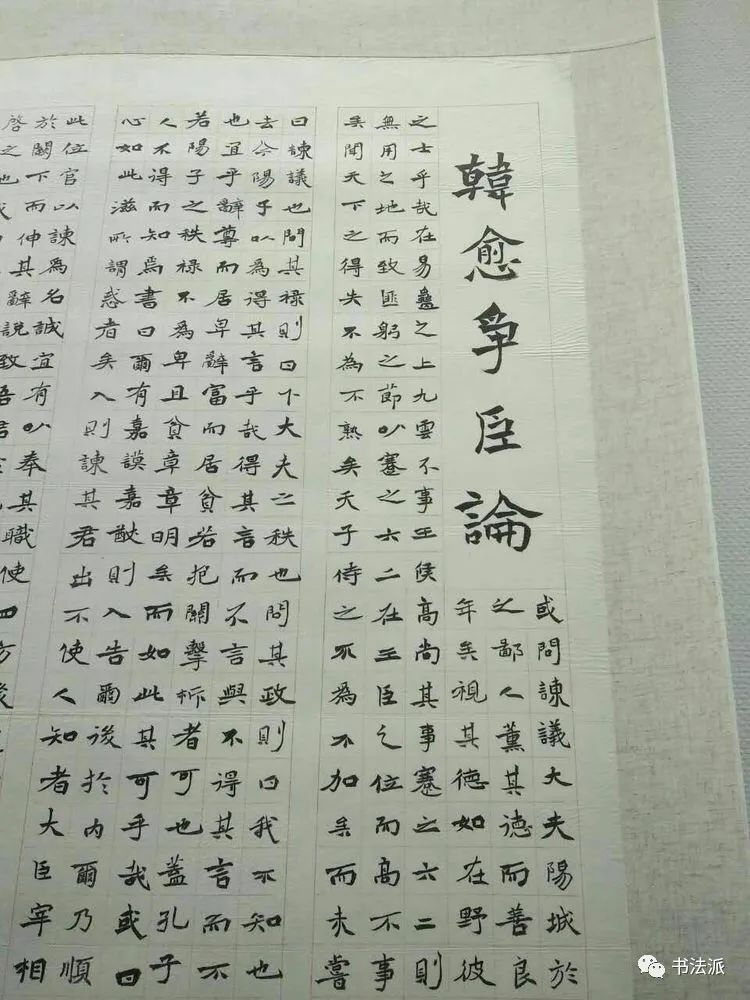 韓愈爭臣論
或問諫議大夫陽城於
之鄙人薰其德而善良
年矣視其德如在野彼
之士乎哉在易蠱之上九雲不事王候高尚其事蹇之六二則
無用之地而致匪躬之節以蹇之六二在王臣之位而高不事
矣聞天下之得失不為不熟矣天子待之不為不加矣而未嘗
曰諫議也問其祿則曰下大夫之秩也問其政則曰我不知也
去今陽子以為得其言乎哉得其言而不言與不得其言而不
也宜乎辭尊而居卑辭富而居貧若抱關擊柝者可也蓋孔子
若陽子之秩祿不為卑且貧章章明矣而如此其可乎哉或曰
人不得而知焉書曰爾有嘉謨嘉猷則入告爾後於內爾乃順
心如此滋所謂惑者矣入則諫其君出不使人知者大臣宰相
此位官以諫為名誠宜有以奉其職使四方後
於闕下而伸其辭說致吾君
啓之也
书法派